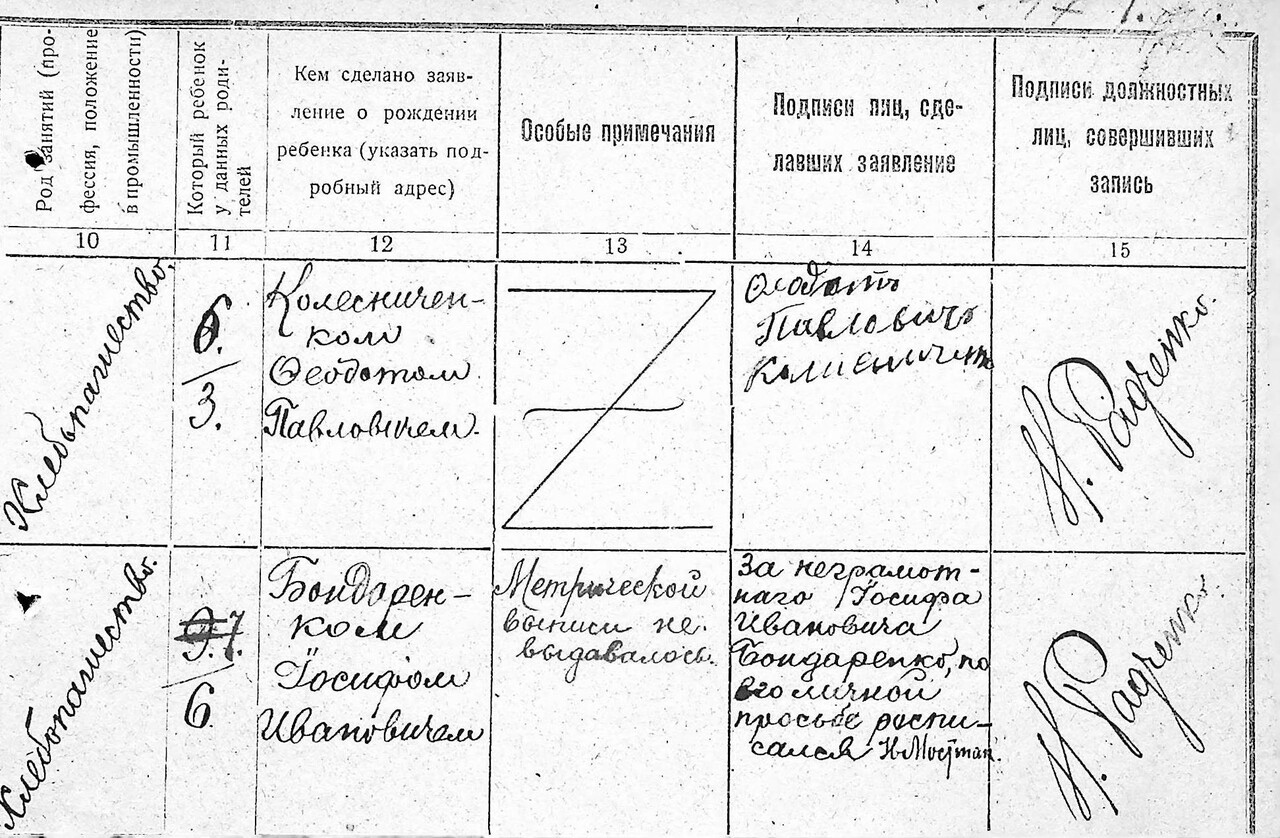 Род занятий (про-
фессия, положение
в промышленности)
Который ребенок
у данных роди-
телей
Кем сделано заяв-
ление о рождении
ребенка (указать под-
робный адрес)
Особые примечания
Подписи лиц, сде-
лавших заявление
Подписи должностных
лиц, совершивших
запись
10
11
12
13
14
15
Хлебопашество.
6.
3.
Колесничен-
ком
Ѳеодотом
Павловичем.
Ѳеодотъ
Павловичъ
Н. Радченко.
Хлебопашество.
7.
6.
Бондарен-
ком
Іосифом
Ивановичем
Метрической
выписи не
выдавалось.
За неграмот-
наго Іосифа
Ивановича
Бондаренко, по
его личной
просьбе распи-
сался
Н. Радченко.